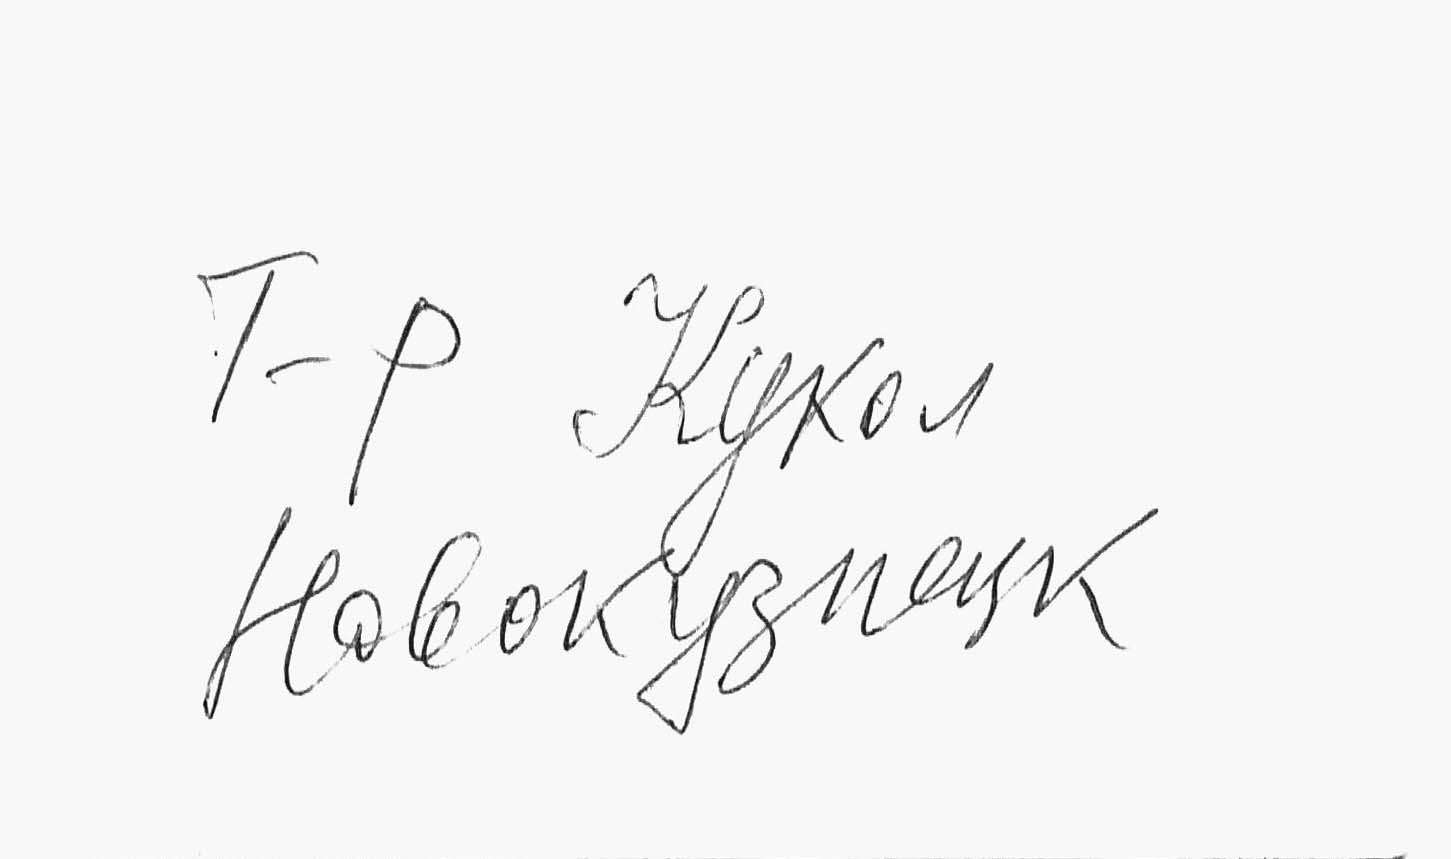 Т-р Кукол
Новокузнецк